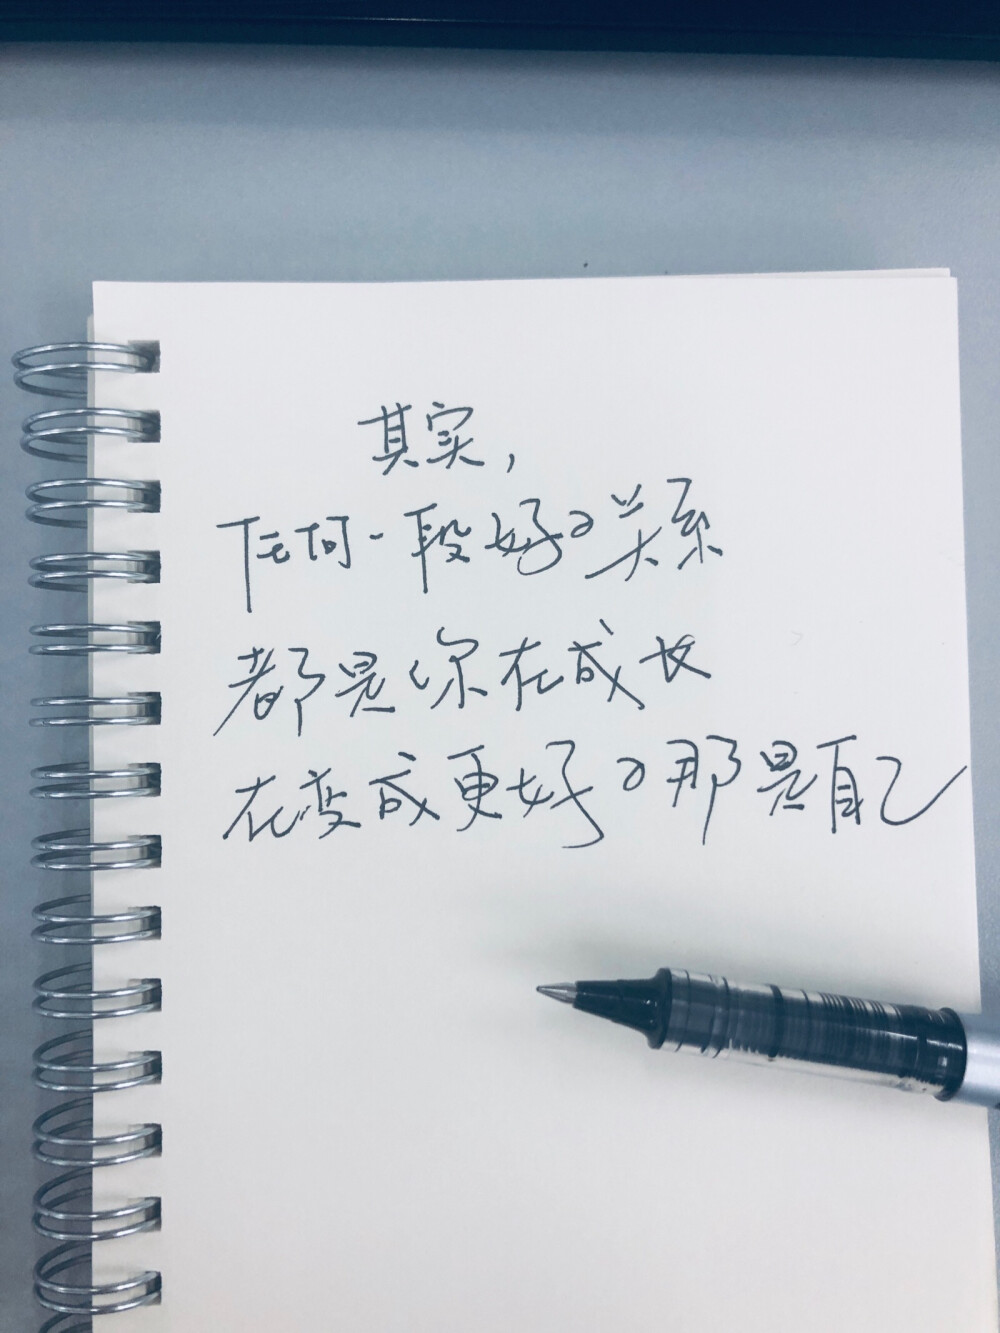 其实，
任何一段好的关系
都是你在成长
在变成更好的那是自己